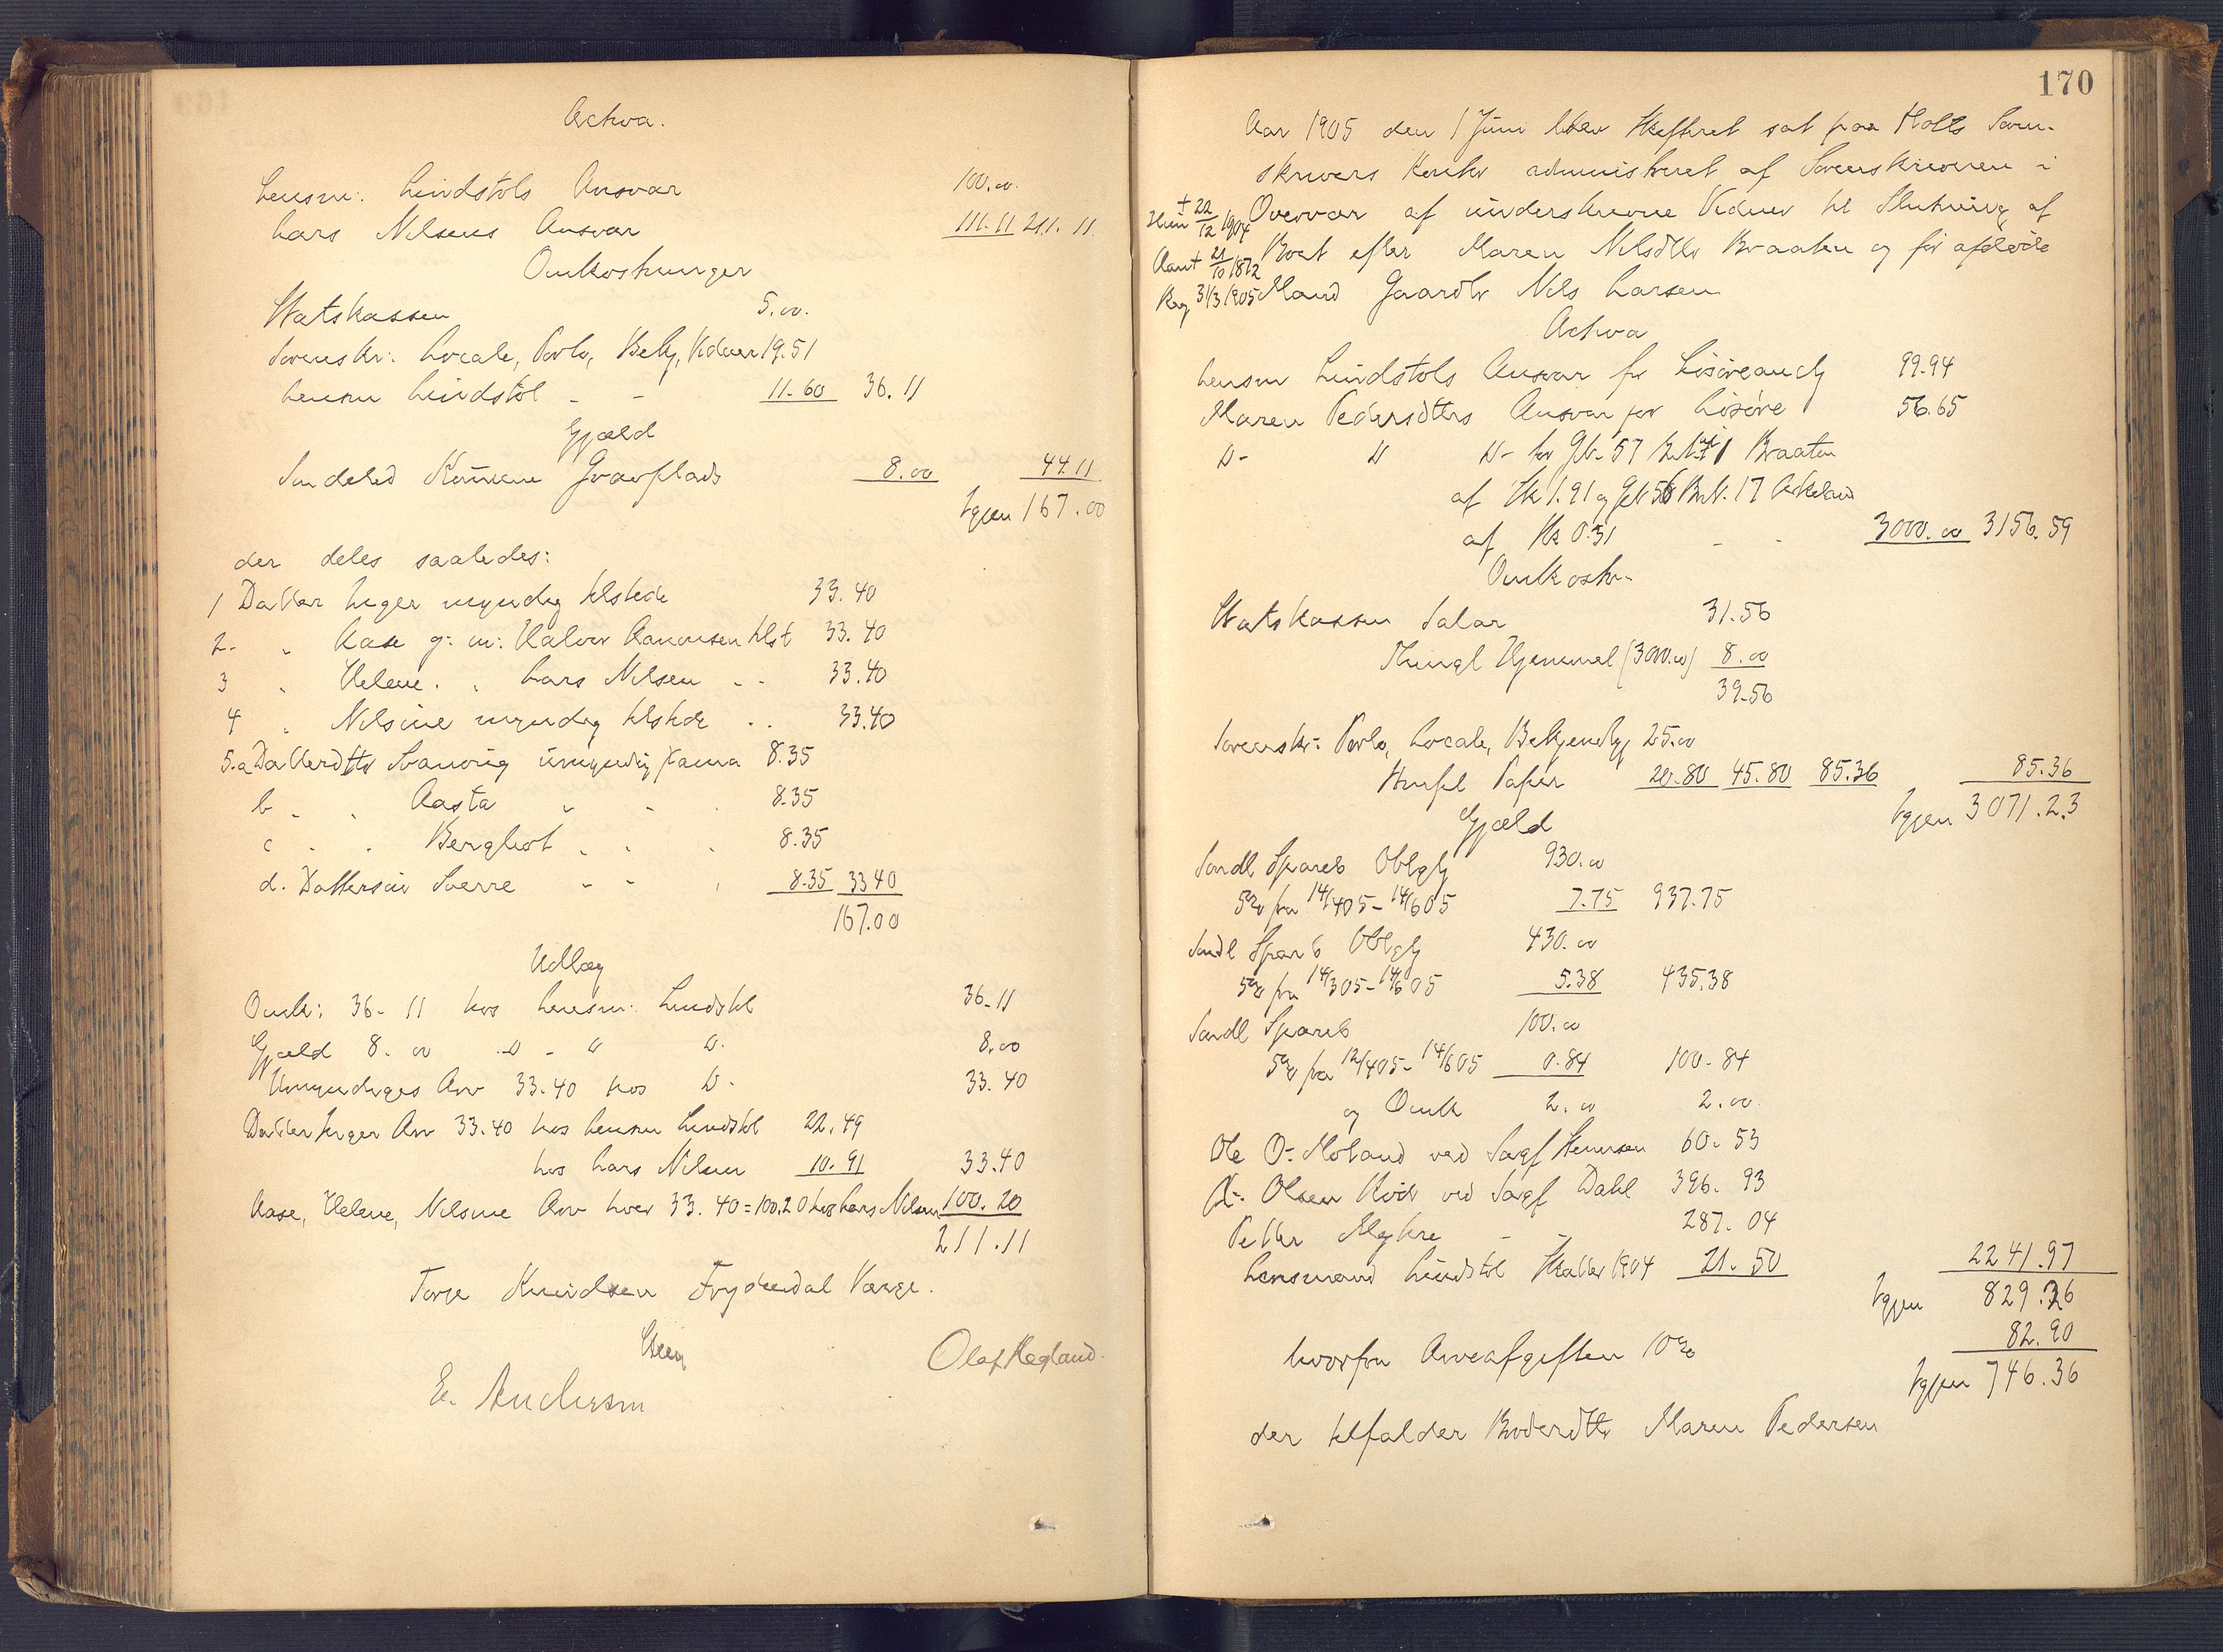 Activa.
Lensm: Lindstøls Ansvar 100.00.
Lars Nilsens Ansvar 111.11 211.11.
Omkostninger
Statskassen 5.00.
Sorenskr: Locale, Porto, Bekj, Vidner 19.51
Lensm Lindstøl - - 11-60 36.11
Gjæld
Søndeled Kommune Gravplads 8.00 44.11
Igjen 167.00
der deles saaledes:
1 Datter Inger myndig tilstede 33.40
2- " Aase g: m: Halvor Aanonsen tilst 33.40
3 " Helene. " Lars Nilsen - - 33.40
4 " Nilsine myndig tilstede .. 33.40
5.a Datterdtr Svanvig umyndig 8.35
b - . Aasta " - . 8.35
c - . Bergliot . . . 8.35
d. Dattersøn Sverre - - , 8.35 33 40
167.00
Udlæg
Omk: 36-11 hos Lensm: Lindstøl 36-11
Gjæld 8.00 D - " D. 8.00
Umyndiges Arv 33.40 hos D- 33.40
Datter Inger Arv 33.40 hos Lensm Lindstøl 22.49
hos Lars Nilsen 10.91 33.40
Aase, Helene, Nilsine Arv hver 33.40=100.20 hos Lars Nilsen 100.20
211.11
Torje Knudsen Frydendal Værge.
Olaf Hegland.
E. Andersen
170
Aar 1905 den 1 Juni blev Skifteret sat paa Holts Soren-
skrivers Kontor administreret af Sorenskriveren i
Overvær af underskrevne Vidner til Slutning af
Boet efter Maren Nilsdtr Braaten og før afdøde
Mand Gaardbr Nils Larsen
Hun + 22/12 1904
Mand + 21/10 1872
Reg 31/3 1905
Activa
Lensm Lindstøls Ansvar for Løsøreauct 99-94
Maren Pedersdtrs Ansvar for Løsøre 56.65
D- D D- for Gb. 57 Br.N. 1 Braaten
af Sk 1.91 og Gb 58 Br.N. 17 Askeland
af Sk 0.31 - - 3000.00 3156.59
Omkostn-
Statskassen Salær 31.56
Thingl Hjemmel (3000.00) 8.00
39-56
Sorenskr- Porto, Locale, Bekjendtgj 25.00
Stempl Papir 20.80 45.80 85.36 85.36
Igjen 3071.23
Gjæld
Søndl Spareb Obligtj 930.00
5% fra 14/4 05-14/6 05 7.75 937.75
Søndl Spareb Obligtj 430.00
5% fra 14/3 05-14/6 05 5.38 435.38
Søndl Spareb 100.00
5% fra 12/4 05-14/6 05 0.84 100-84
og Omk 2.00 2.00.
Ole O. Moland ved Sagf Stenersen 60.53
Olsen ved Sagf Dahl 396.93
Petter Mykre - - 287.04
Lensmand Lindstøl Skatter 1904 21.50 2241.97
Igjen 829.26
hvorfra Arveafgiften 10% 82.90
Igjen 746.36
der tilfalder Broderdtr Maren Pedersen